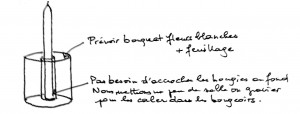 Prévoir bouquet fleurs blanches
+ feuillage
Pas besoin d'accrocher les bougies au fond
Nous mettrons un peu de sable ou gravier
pour les caler dans les bougeoirs.